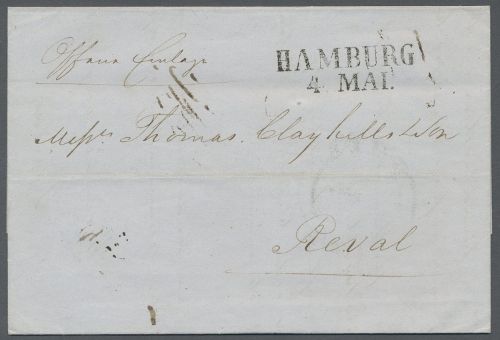 Offene Einlage
HAMBURG
4 MAI.
Messrs Thomas Clayhills & Son
Reval